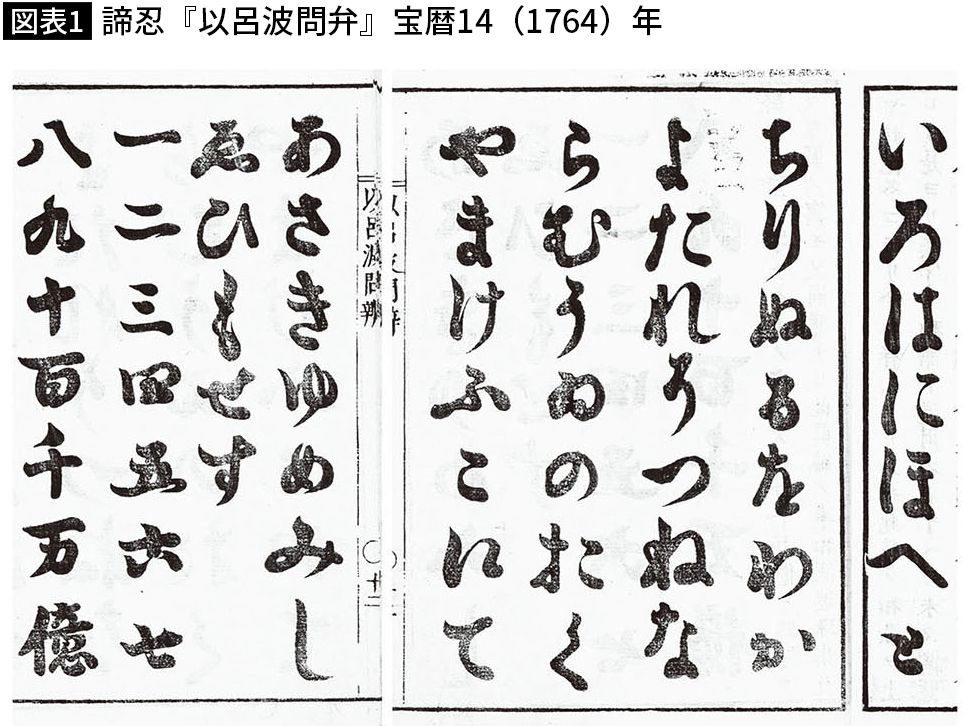 図表1 諦忍『以呂波問弁』宝暦14（1764）年
いろはにほへと
ちりぬるをわか
よたれそつねな
らむうゐのおく
やまけふこえて
以呂波問辨
以呂波問辨
〇十二
あさきゆめみし
ゑひもせす
一二三四五六七
八九十百千万億